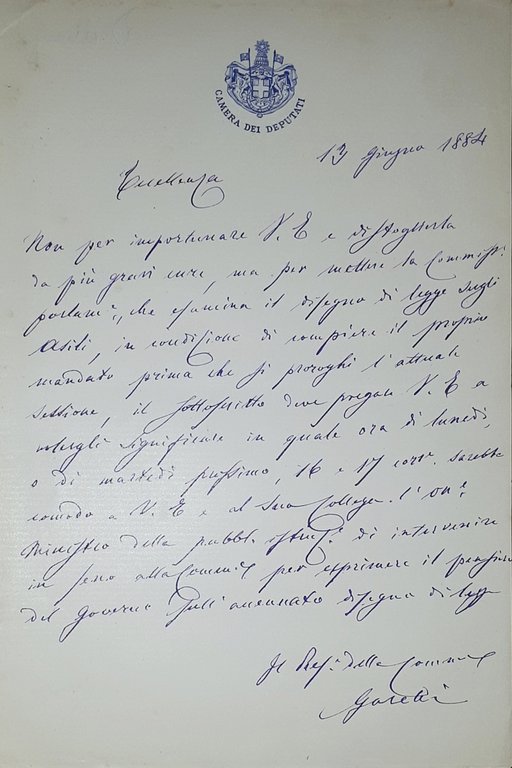 CAMERA DEI DEPUTATI
13 Giugno 1884
Eccellenza
Non per importunare V. E e distoglierla
da più gravi cure, ma per mettere la Commiss.e
parlam.e, che esamina il disegno di legge sugli
Asili, in condizione di compiere il proprio
mandato prima che si proroghi l'attuale
sessione, il sottoscritto deve pregare V. E a
volergli significare in quale ora di lunedì,
o di martedì prossimo, 16 e 17 corr.e sarebbe
comodo a V. E e al suo Collega l'on.e
Ministro della pubbl. istruz.e di intervenire
in seno alla Commis per esprimere il pensiero
del Governo sull'accennato disegno di legge
Il Pres.e della Commis